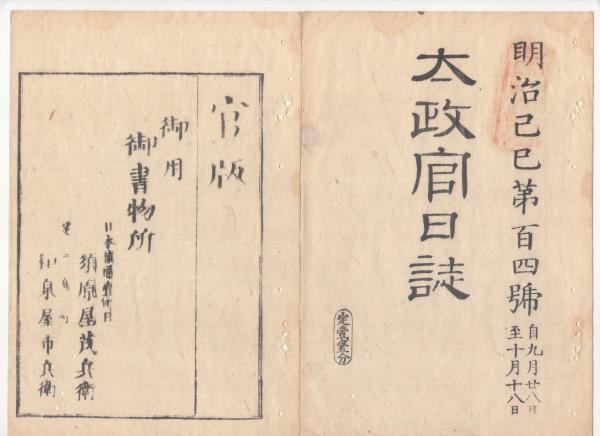 明治己巳第百四號
自九月廿八日
至十月十八日
太政官日誌
定壹匁五分
官版
御用
御書物所
須原屋茂兵衛
和泉屋市兵衛